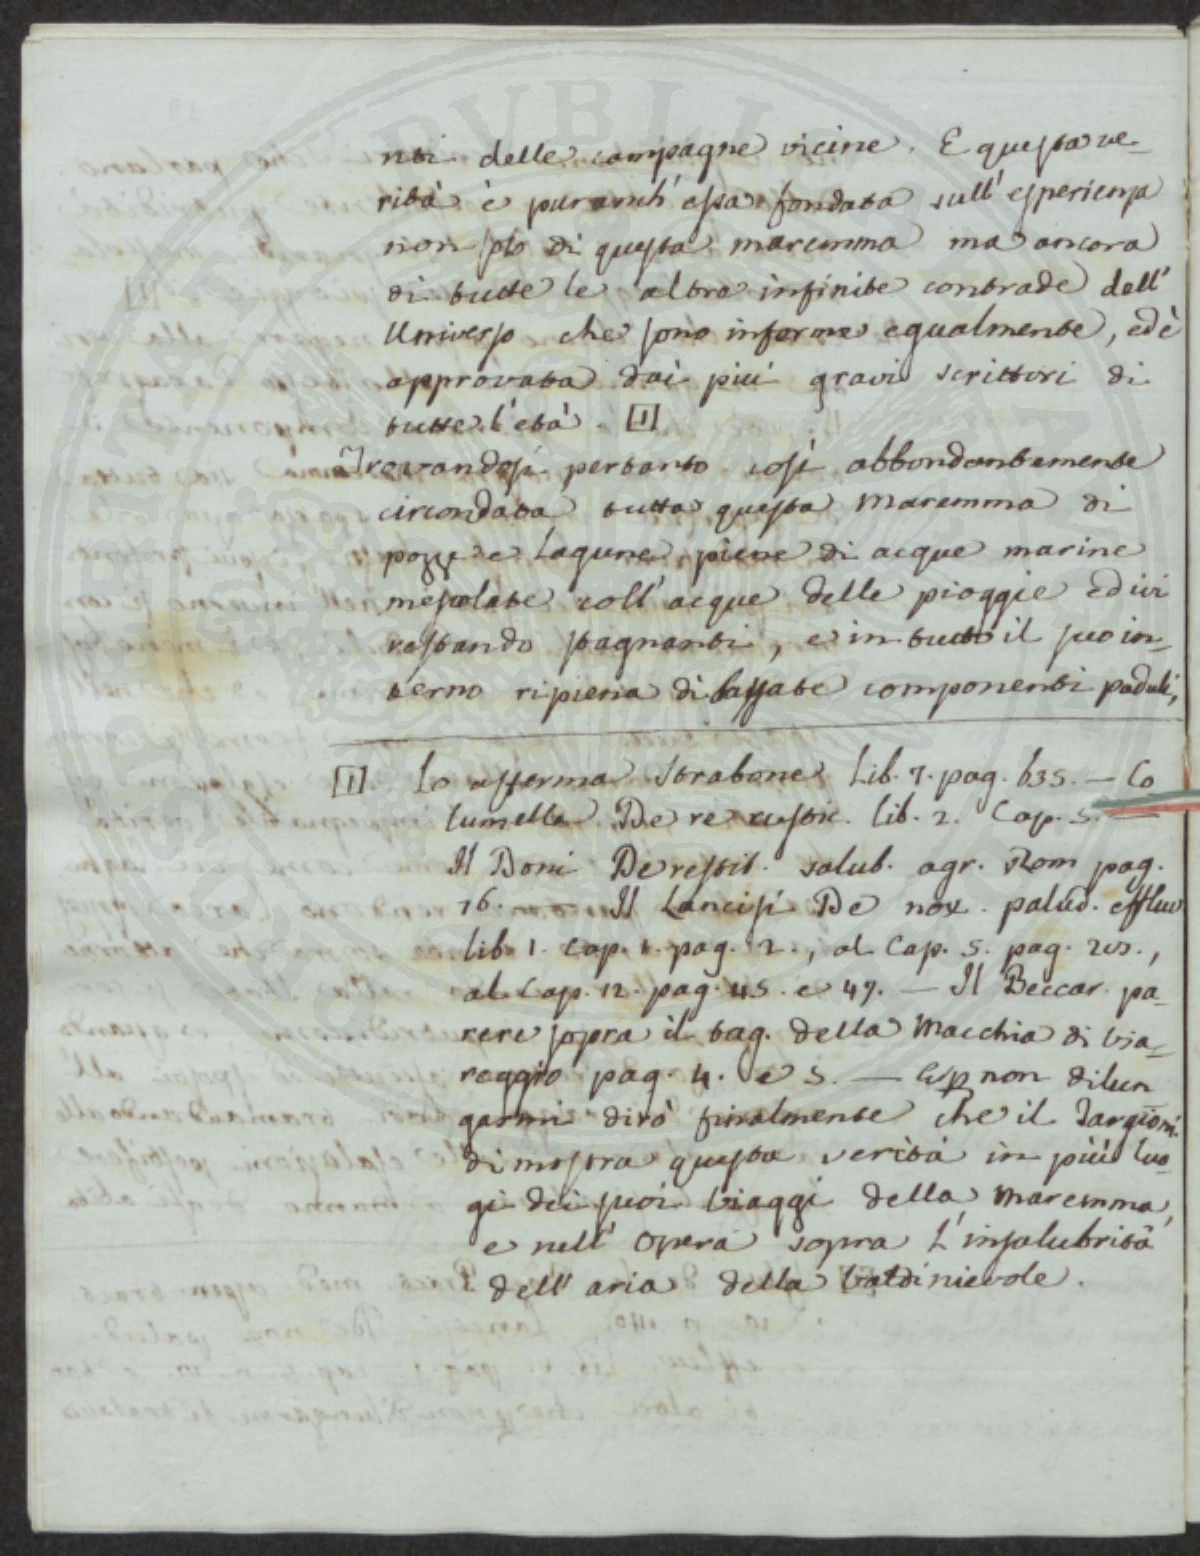 nti delle campagne vicine. E questa ve-
rità è puranch' essa fondata sull' esperienza
non solo di questa maremma ma ancora
di tutte le altre infinite contrade dell'
Universo che sono inferme egualmente, ed è
approvata dai più gravi scrittori di
tutte l'età. [1]
Trovandosi pertanto così abbondantemente
circondata tutta questa Maremma di
pozze e Lagune piene di acque marine
mescolate coll' acque delle pioggie ed ivi
restando stagnanti, e in tutto il suo in-
terno ripiena di bassate componenti paduli,
[1] Lo afferma Strabone Lib. 7. pag. 635. — Co
lumella De re rustic. lib. 2. Cap. 5. —
Il Doni De restit. salub. agr. Rom pag.
76. — Il Lancisi De nox. palud. effluv
lib 1. Cap. 1. pag. 2., al Cap. 5. pag. 20.,
al Cap. 12. pag. 45. e 49. — Il Beccar. pa-
rere sopra il tag. della Macchia di Via-
reggio pag. 4. e 5. — E p non dilun
garmi dirò finalmente che il Targioni
dimostra questa verità in più luo-
gi dei suoi Viaggi della Maremma,
e nell' Opera sopra L'insalubrità
dell' aria della Valdinievole.